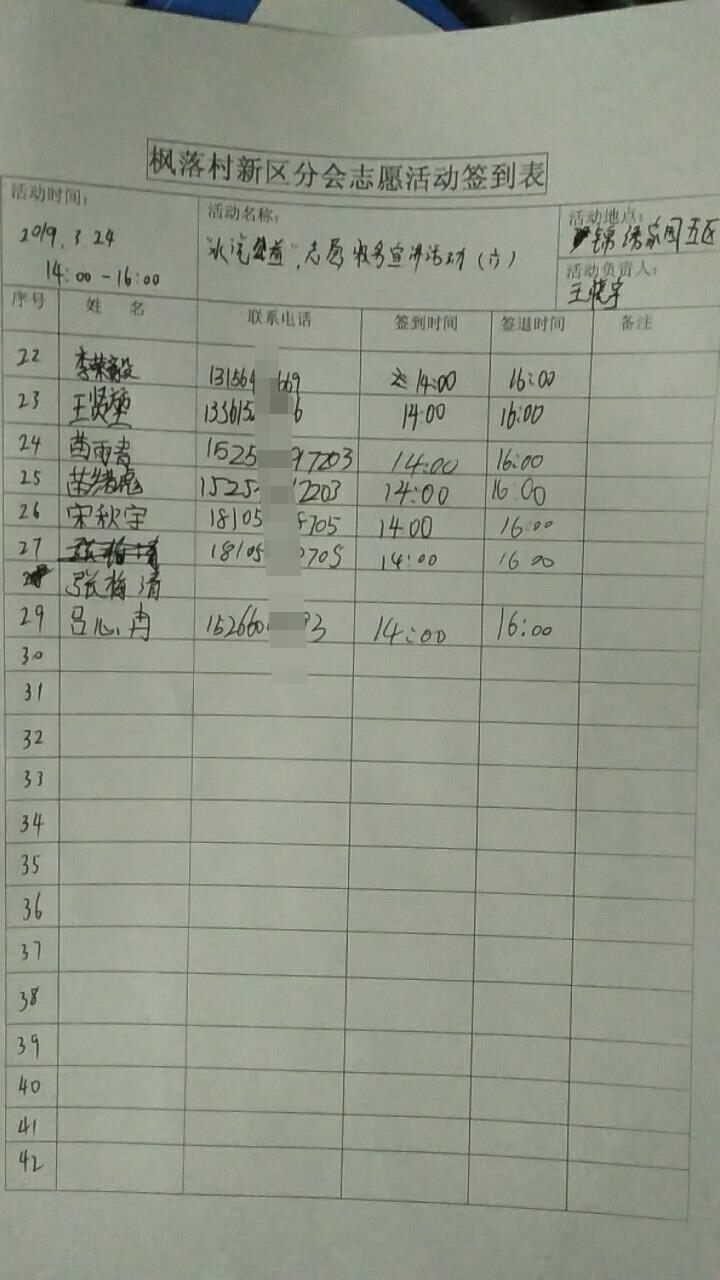 枫落村新区分会志愿活动签到表
活动时间: 活动名称: 活动地点:
2019.3.24 志愿服务宣讲活动(六) 锦绣家园五区
14:00-16:00 活动负责人:
王晓宇
序号 姓名 联系电话 签到时间 签退时间 备注
22 李荣毅 131564 669 14:00 16:00
23 王贤 133615 6 14:00 16:00
24 雨 1525 97203 14:00 16:00
25 苗 1525 7203 14:00 16:00
26 宋秋宇 18105 705 14:00 16:00
27 18105 705 14:00 16:00
张梅清
29 吕心冉 152660 3 14:00 16:00
30
31
32
33
34
35
36
37
38
39
40
41
42